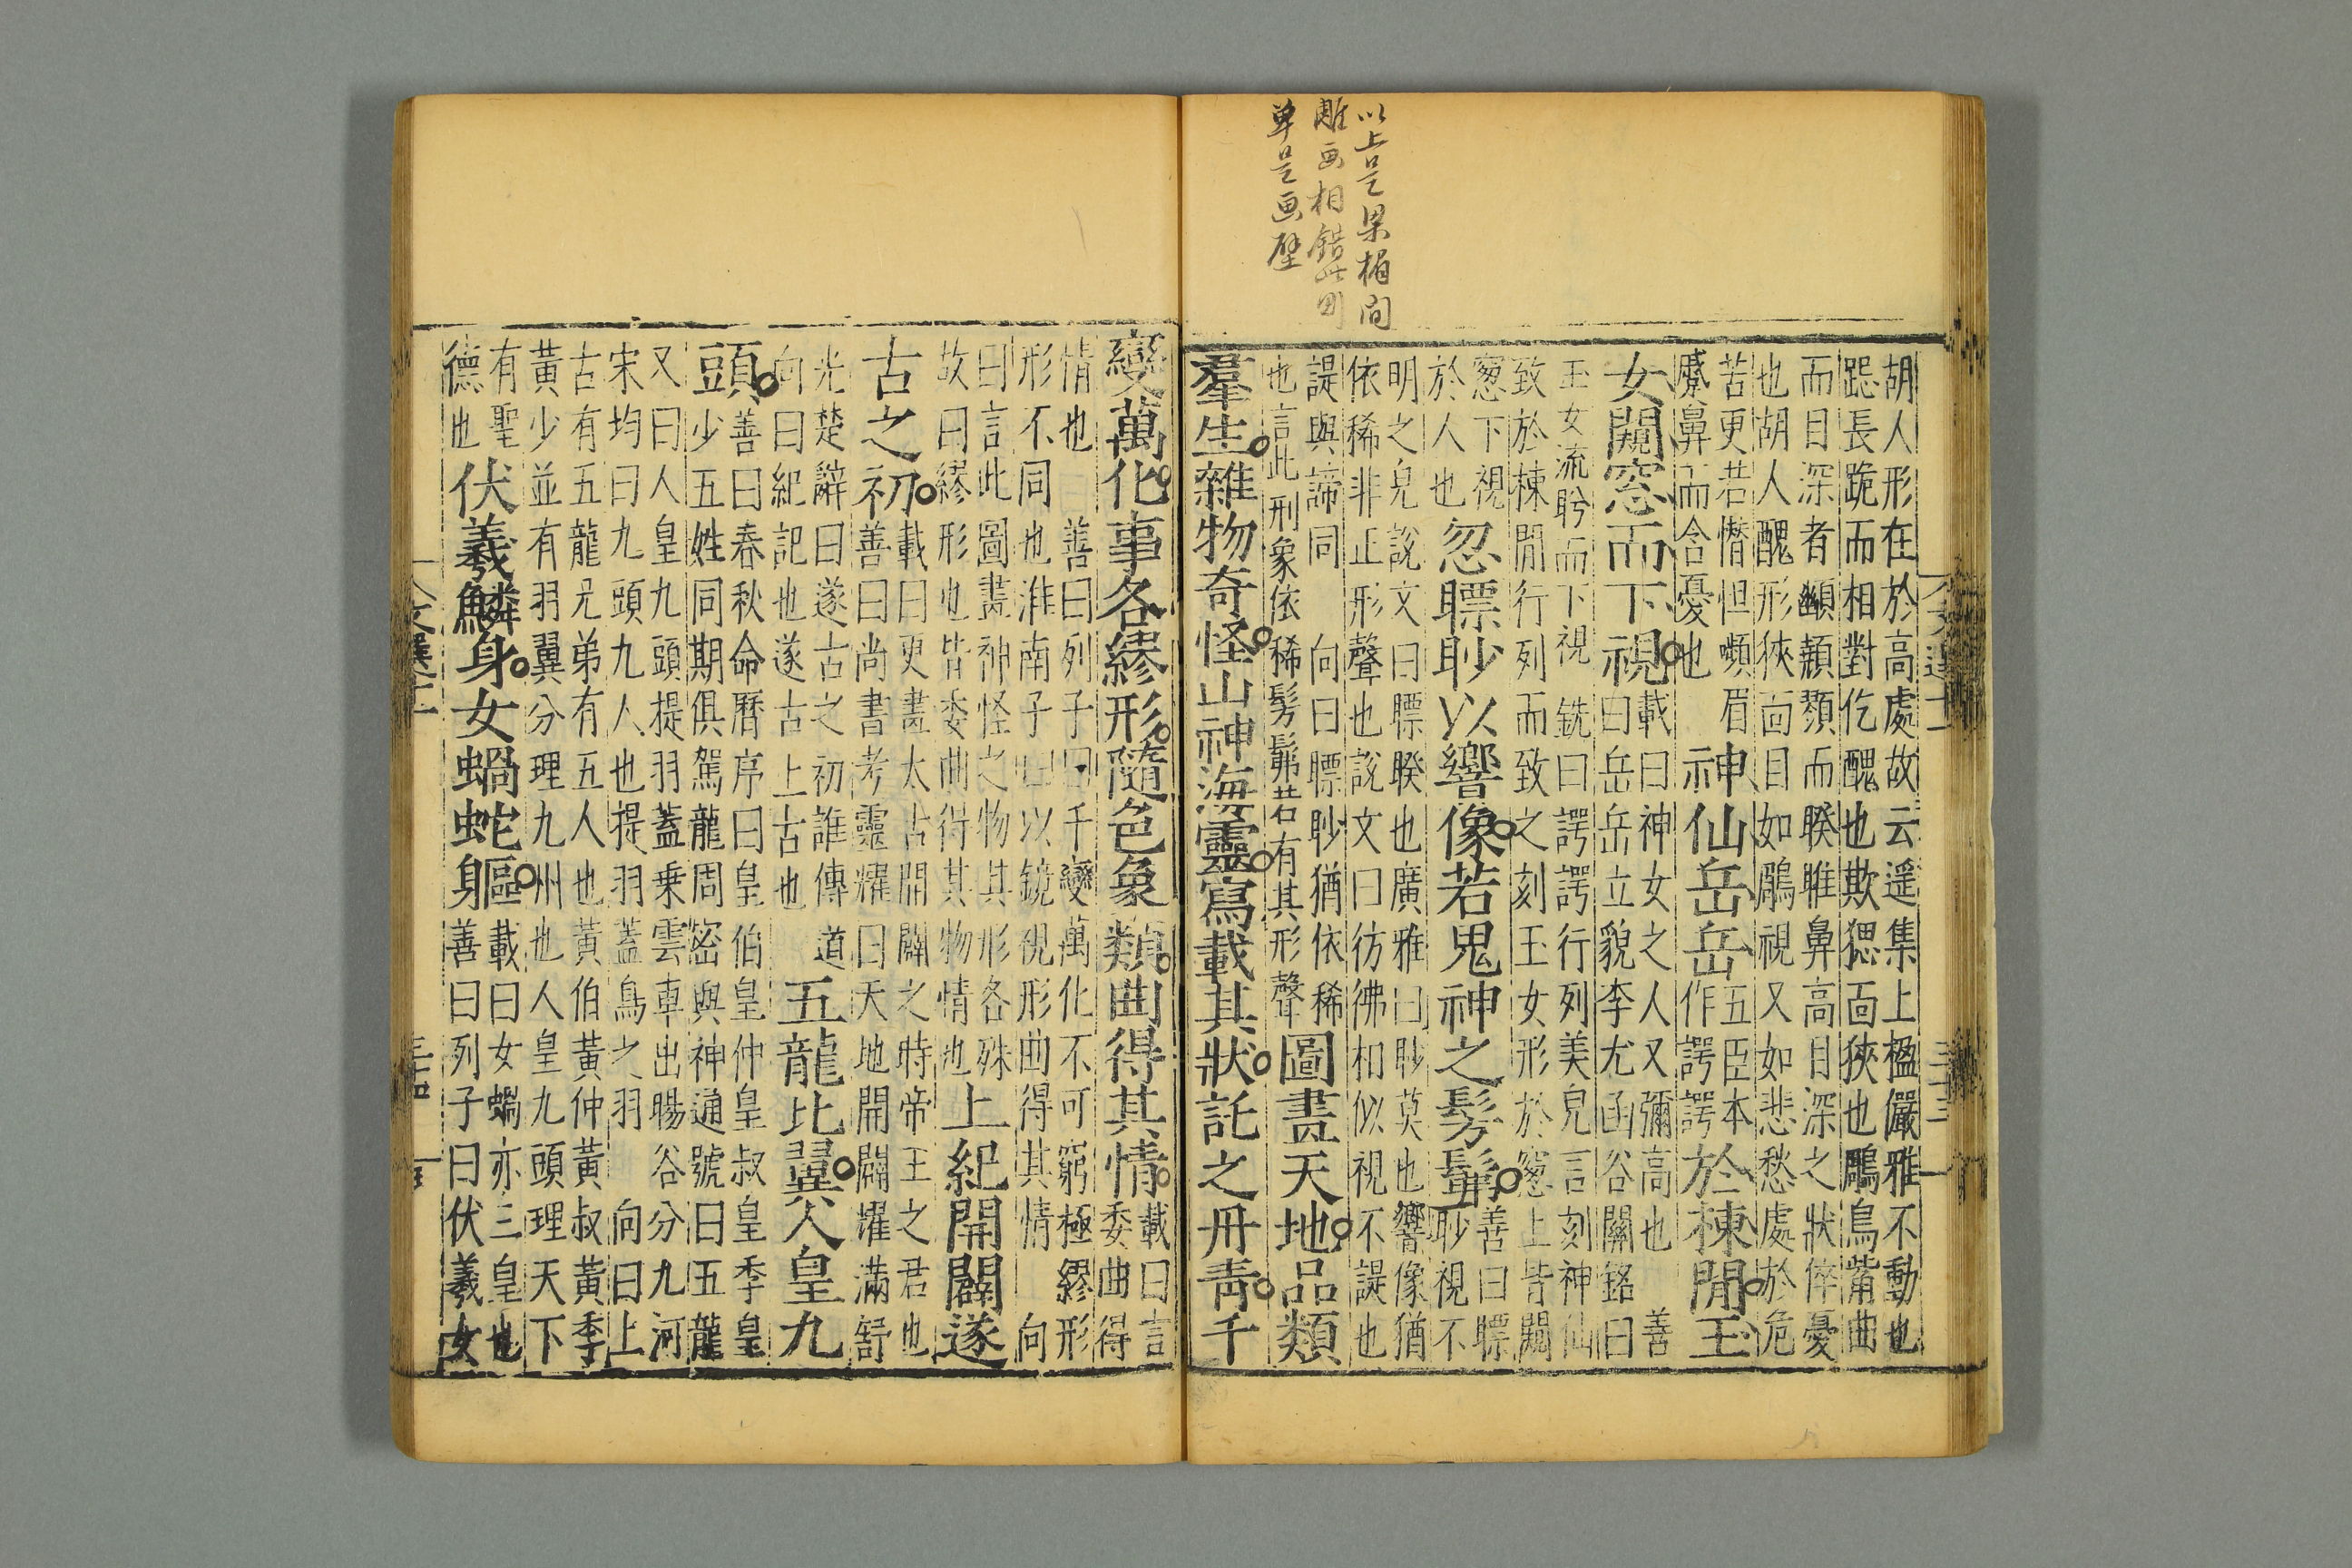 以上是梁楣間
雕画相錯此則
单是画壁
胡人形在於高處故云遥集上楹儼雅不動也
跽長跪而相對仡醜也欺猤面狹也鵰鳥觜曲
而目深者顱顤顟而睽睢鼻高目深之狀倅憂
也胡人醜形狹面目如鵰視又如悲愁處於危
苦更若憯怛嚬眉
蹙鼻而含憂也
神仙岳岳
五臣本
作諤諤
於棟間玉
女闚窓而下視
載曰神女之人又彌高也 善
曰岳岳立貌李尤函谷關銘曰
玉女流眄而下視 銑曰諤諤行列美皃言刻神仙
致於棟間行列而致之刻玉女形於窓上皆闚
窓下視
於人也
忽瞟眇以響像若鬼神之髣髴
善曰瞟
眇視不
明之皃說文曰瞟睽也廣雅曰眇莫也響像猶
依稀非正形聲也說文曰彷彿相似視不諟也
諟與諦同 向曰瞟眇猶依稀
也言此刑象依稀髣髴若有其形聲
圖畫天地品類
羣生雜物奇怪山神海靈寫載其狀託之丹青千
文選十一
三十三
變萬化事各繆形隨色象類曲得其情
載曰言
委曲得
情也 善曰列子曰千變萬化不可窮極繆形
形不同也淮南子曰以鏡視形曲得其情 向
曰言此圖畫神怪之物其形各殊
故曰繆形也皆委曲得其物情也
上紀開闢遂
古之初
載曰更畫太古開闢之時帝王之君也
善曰尚書考靈耀曰天地開闢耀滿舒
光楚辭曰遂古之初誰傳道
向曰紀記也遂古上古也
五龍比翼人皇九
頭
善曰春秋命曆序曰皇伯皇仲皇叔皇季皇
少五姓同期俱駕龍周密與神通號曰五龍
又曰人皇九頭提羽蓋乗雲車出暘谷分九河
宋均曰九頭九人也提羽蓋鳥之羽 向曰上
古有五龍兄弟有五人也黃伯黃仲黃叔黃季
黃少並有羽翼分理九州也人皇九頭理天下
有聖
德也
伏羲鱗身女蝸蛇軀
載曰女蝸亦三皇也
善曰列子曰伏羲女
文選十一
三十四